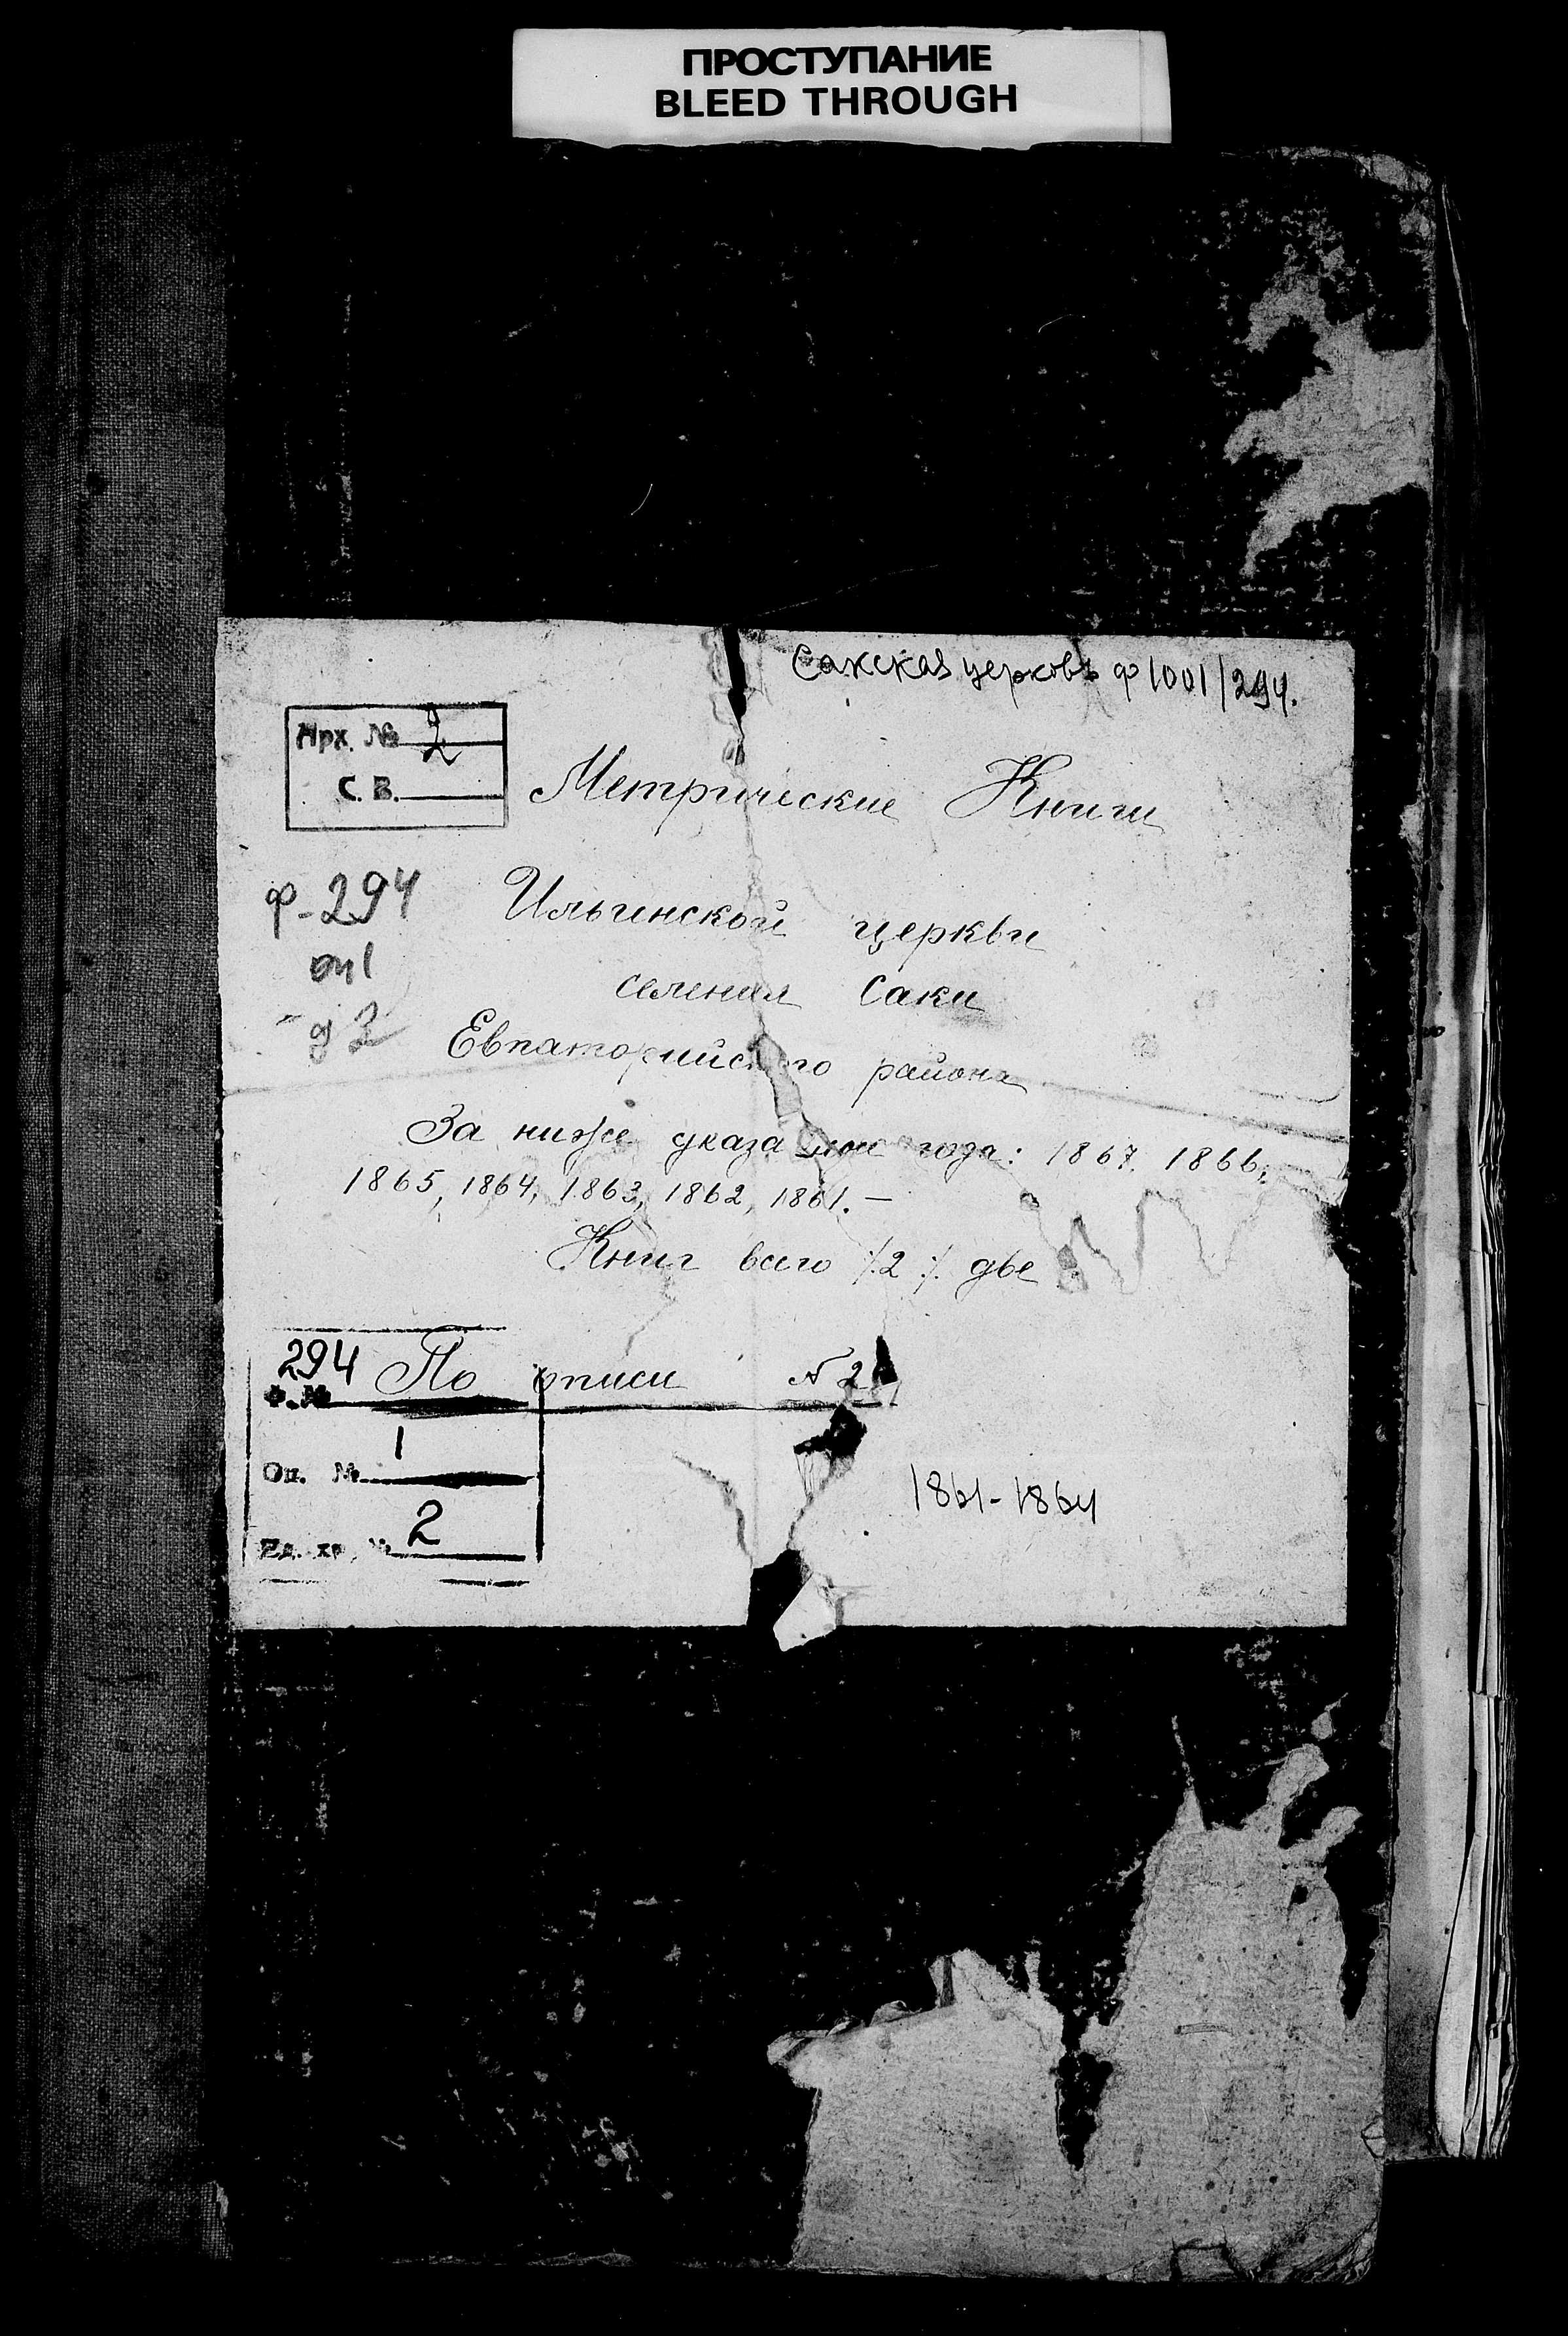 ПРОСТУПАНИЕ
BLEED THROUGH
Сакская церковь ф 1001/294.
Арх. № 2
С. В.
Метрические Книги
ф-294
оп 1
д 2
Ильинской церкви
селения Саки
Евпаторийского района
За ниже указанные года: 1867, 1866,
1865, 1864, 1863, 1862, 1861. —
Книг всего ./. 2 ./. две
По описи № 2
294
Ф. №
1
Оп. №
2
Ед. хр. №
1861-1864